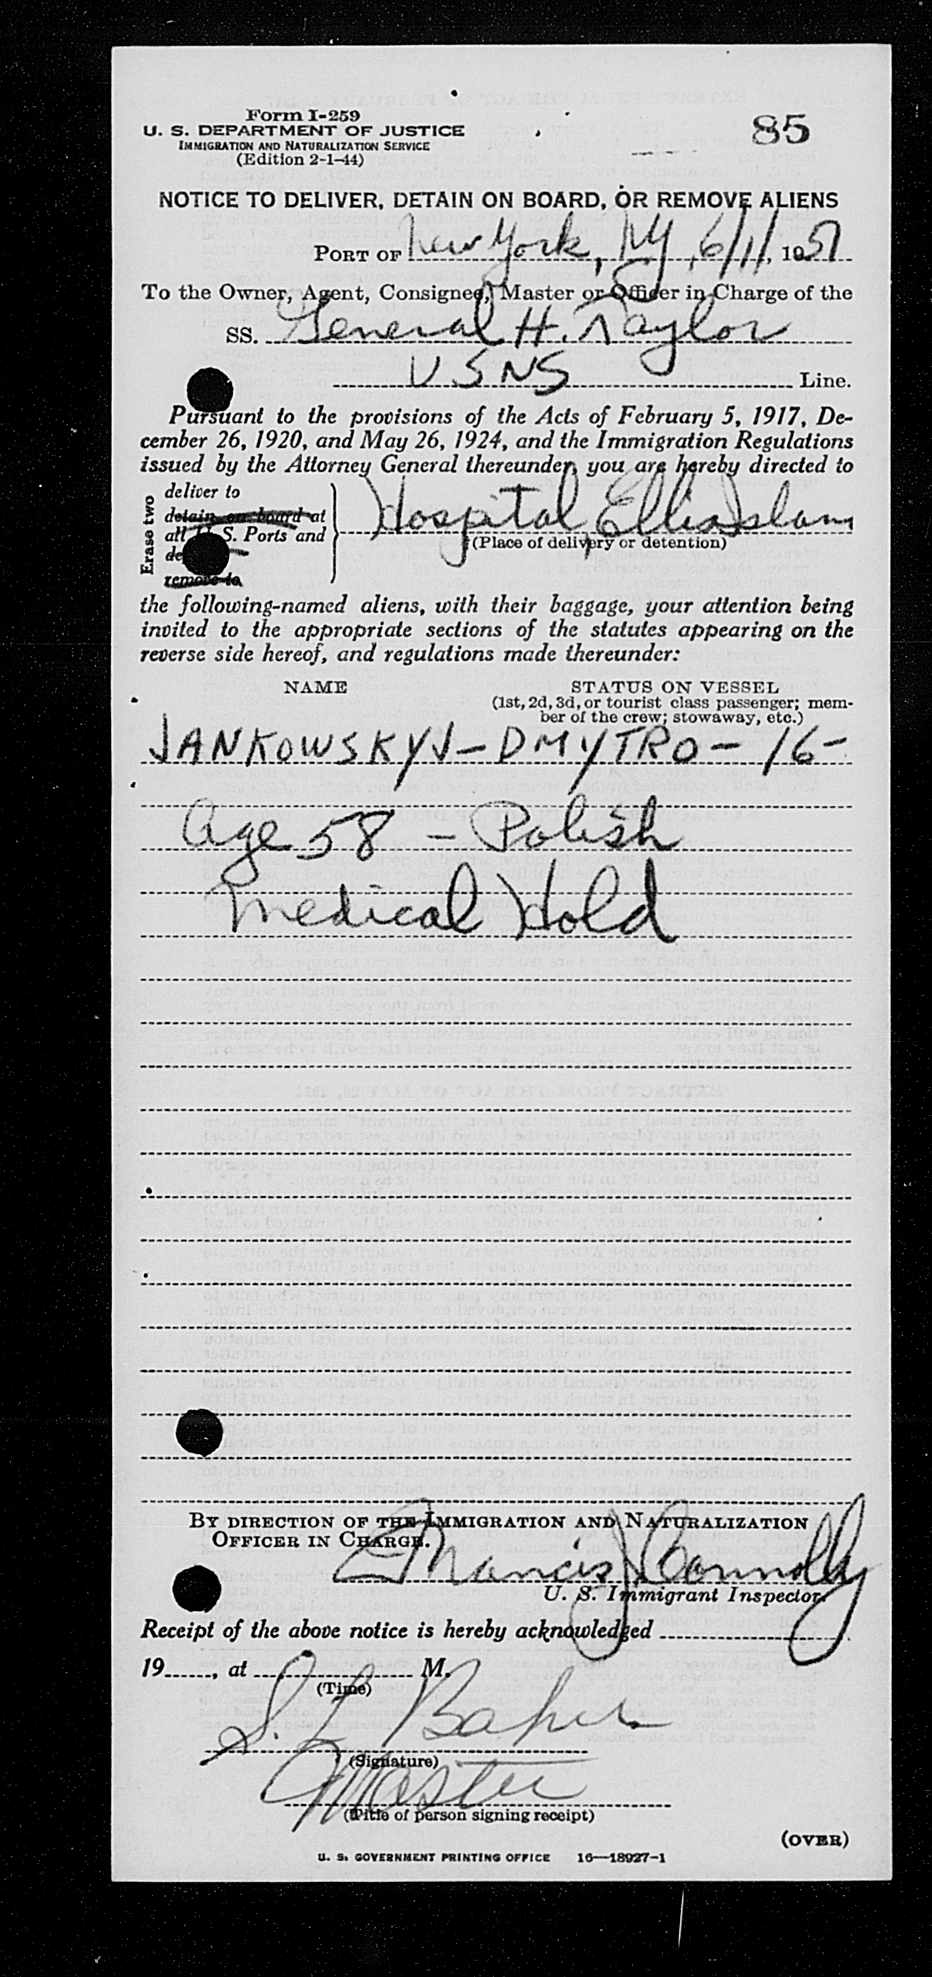 Form I-259
U. S. DEPARTMENT OF JUSTICE
IMMIGRATION AND NATURALIZATION SERVICE
(Edition 2-1-44)
85
NOTICE TO DELIVER, DETAIN ON BOARD, OR REMOVE ALIENS
PORT OF New York, NY, 6/11, 1951
To the Owner, Agent, Consignee, Master or Officer in Charge of the
SS. General H. Taylor
USNS Line.
Pursuant to the provisions of the Acts of February 5, 1917, De-
cember 26, 1920, and May 26, 1924, and the Immigration Regulations
issued by the Attorney General thereunder, you are hereby directed to
Erase two
deliver to
detain on board at
all U. S. Ports and
remove to
Hospital, Ellis Islan
(Place of delivery or detention)
the following-named aliens, with their baggage, your attention being
invited to the appropriate sections of the statutes appearing on the
reverse side hereof, and regulations made thereunder:
NAME
STATUS ON VESSEL
(1st, 2d, 3d, or tourist class passenger; mem-
ber of the crew; stowaway, etc.)
JANKOWSKYJ - DMYTRO - 16 -
Age 58 - Polish
Medical Hold
BY DIRECTION OF THE IMMIGRATION AND NATURALIZATION
OFFICER IN CHARGE.
Francis J Connolly
U. S. Immigrant Inspector.
Receipt of the above notice is hereby acknowledged
19......, at M.
(Time)
S. L. Baker
(Signature)
Master
(Title of person signing receipt)
(OVER)
U. S. GOVERNMENT PRINTING OFFICE 16—18927-1